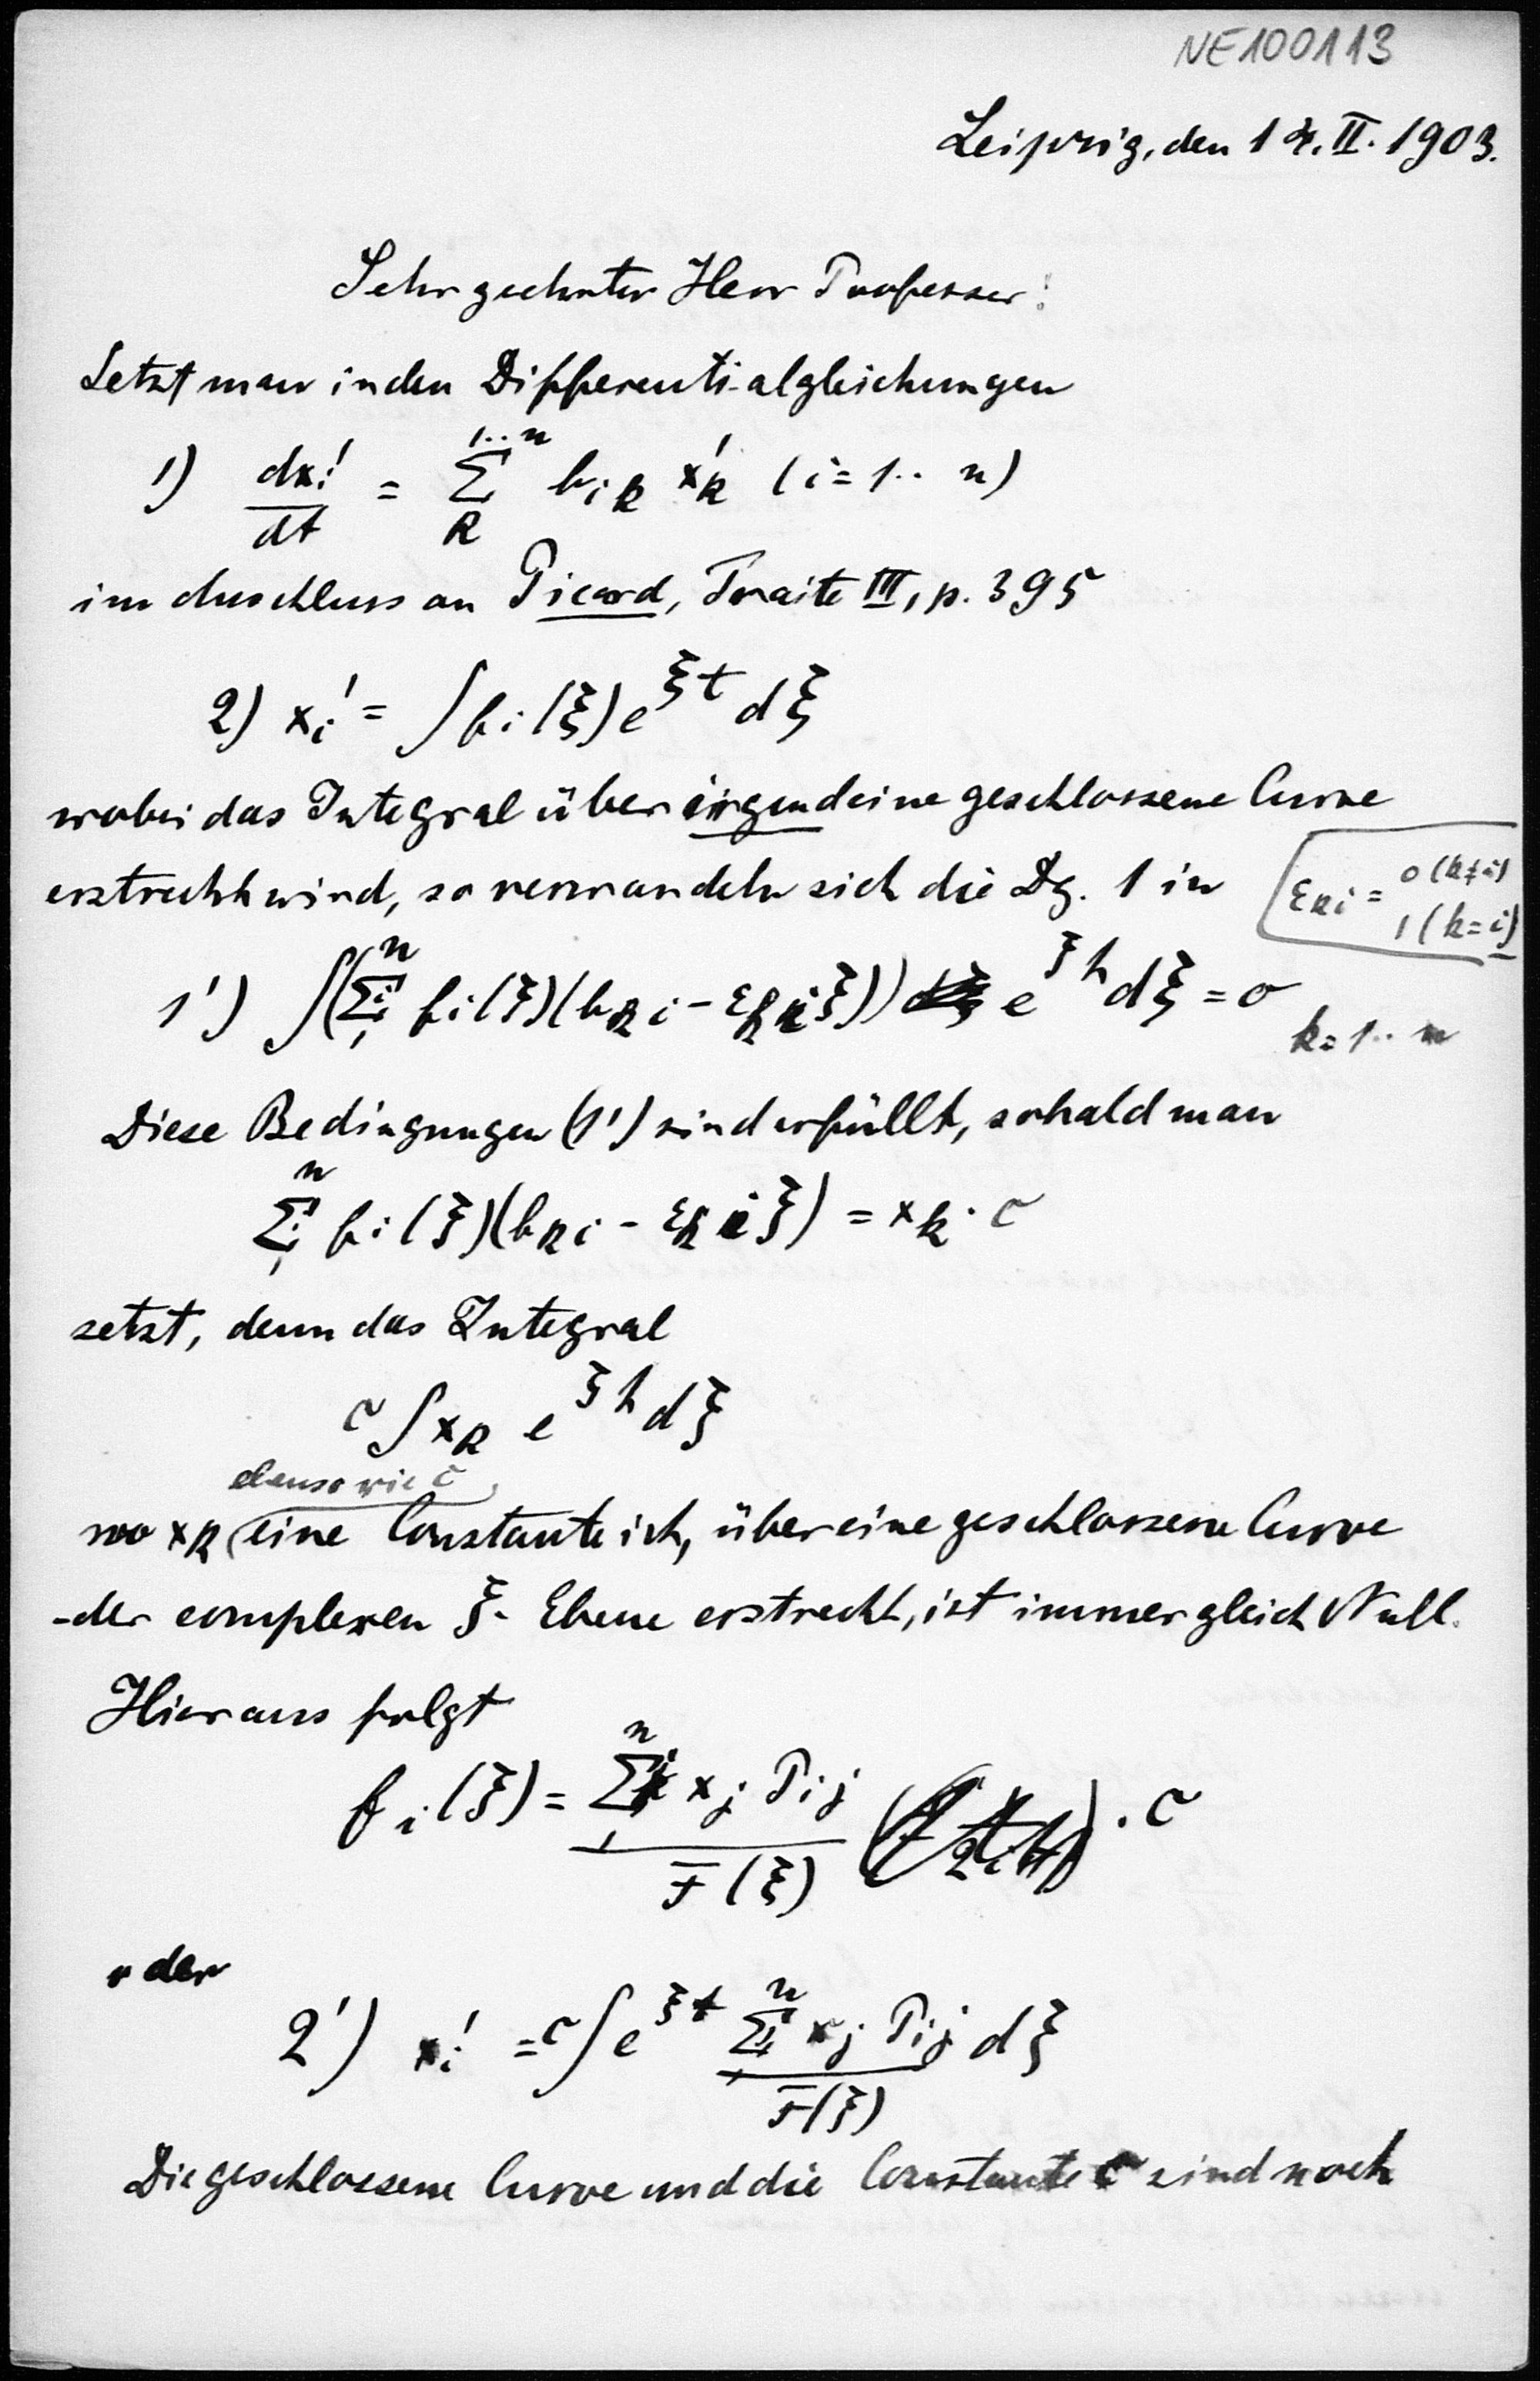 NE100113
Leipzig, den 14. II. 1903.
Sehr geehrter Herr Professor!
Setzt man in den Differentialgleichungen
1) dx_i'/dt = Σ_k^{1..n} b_{ik} x'_k (i = 1.. n)
im Anschluss an Picard, Traite III, p. 395
2) x_i' = ∫ f_i(ξ) e^{ξt} dξ
wobei das Integral über irgendeine geschlossene Curve
erstreckt wird, so verwandeln sich die Dg. 1 in
ε_{ki} = 0 (k≠i)
1 (k=i)
1') ∫(Σ_i^n f_i(ξ)(b_{ki} - ε_{ki}ξ)) e^{ξt} dξ = 0
k = 1.. n
Diese Bedingungen (1') sind erfüllt, sobald man
Σ_i^n f_i(ξ)(b_{ki} - ε_{ki}ξ) = x_k · c
setzt, denn das Integral
c ∫ x_k e^{ξt} dξ
ebenso wie c
wo x_k eine Constante ist, über eine geschlossene Curve
der complexen ξ-Ebene erstreckt, ist immer gleich Null.
Hieraus folgt
f_i(ξ) = Σ_j^n x_j P_{ij} / F(ξ) · c
oder
2') x_i' = c ∫ e^{ξt} Σ_j^n x_j P_{ij} / F(ξ) dξ
Die geschlossene Curve und die Constante c sind noch